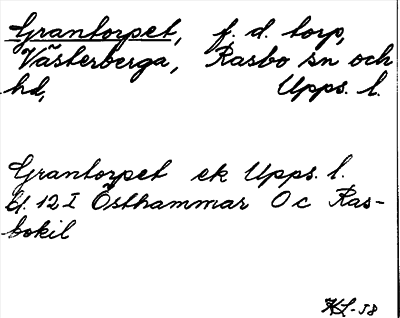 Grantorpet, f. d. torp,
Västerberga, Rasbo sn och
hd, Upps. l.
Grantorpet ek Upps. l.
bl. 12 I Östhammar Oc Ras-
bokil
HL-58